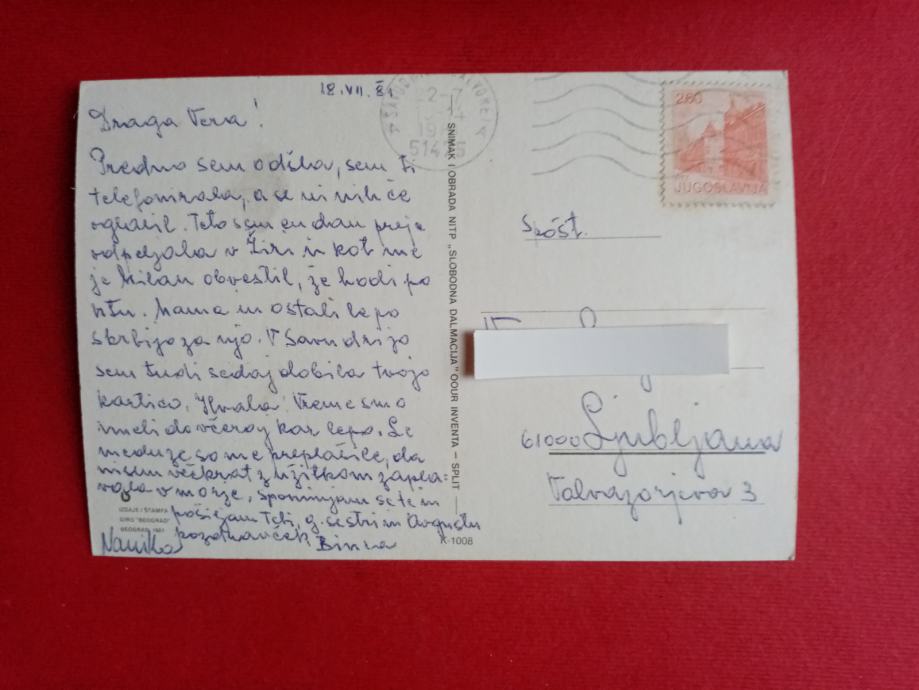 18.VII.81
Draga Vera!
Predno sem odšla, sem ti
telefonirala, a se ni nihče
oglasil. Teto sem en dan preje
odpeljala v Žiri in kot me
je Milan obvestil, že hodi po
vrtu. Mama in ostali lepo
skrbijo za njo. V Savudrijo
sem tudi sedaj dobila tvojo
kartico. Hvala! Vreme smo
imeli do včeraj kar lepo. Le
meduze so me preplašile, da
nisem večkrat z užitkom zapla-
vala v morje, spominjam se te in
pošiljam Tebi, g. sestri in Avguštu
pozdravček Binca
Nanika
IZDAJE I ŠTAMPA
GIRO "BEOGRAD"
BEOGRAD 1981
K-1008
SNIMAK I OBRADA NITP „SLOBODNA DALMACIJA" OOUR INVENTA – SPLIT
22-7
19
51425
2.60
JUGOSLAVIJA
Spošt.
61000 Ljubljana
Valvazorjeva 3